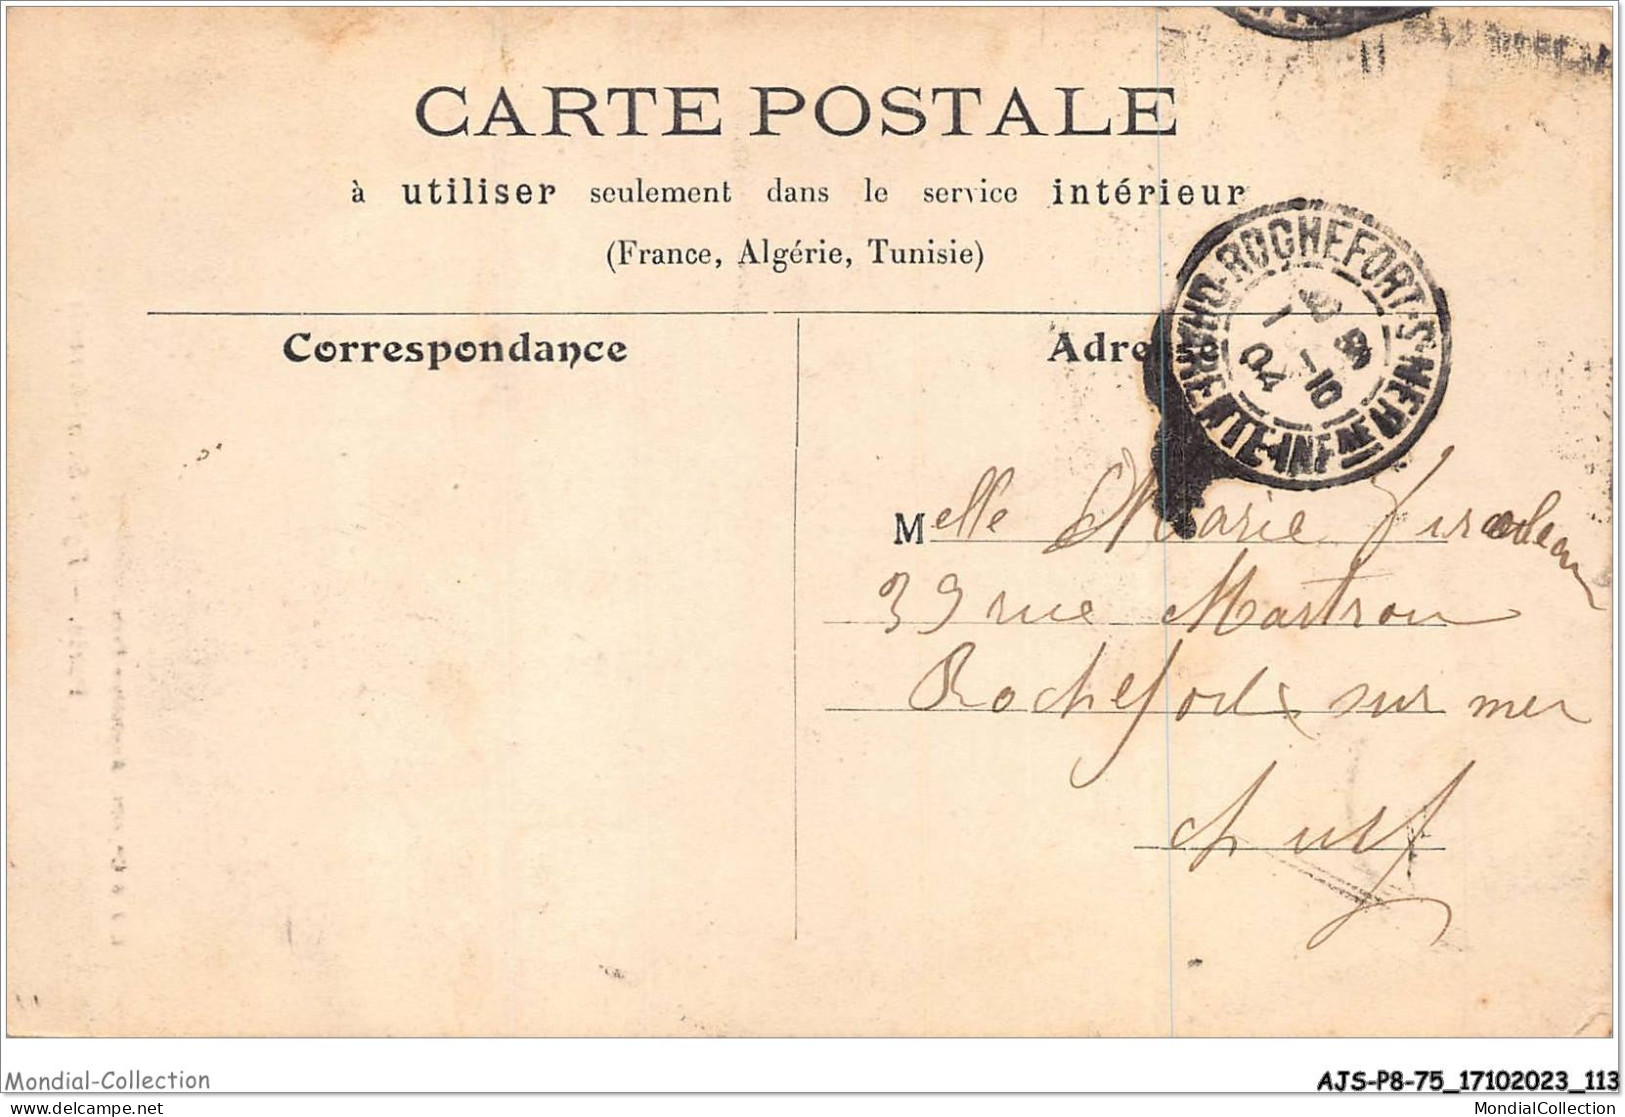 CARTE POSTALE
à utiliser seulement dans le service intérieur
(France, Algérie, Tunisie)
ROCHEFORT-S-MER
CHARENTE-INFRE
1-10
04
Correspondance
Adresse
Melle Marie
39 rue Martrou
Rochefort sur mer
Mondial-Collection
AJS-P8-75_17102023_113
www.delcampe.net
MondialCollection